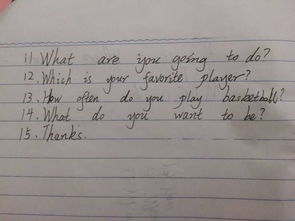 11. What are you going to do?
12. Which is your favorite player?
13. How often do you play basketball?
14. What do you want to be?
15. Thanks.